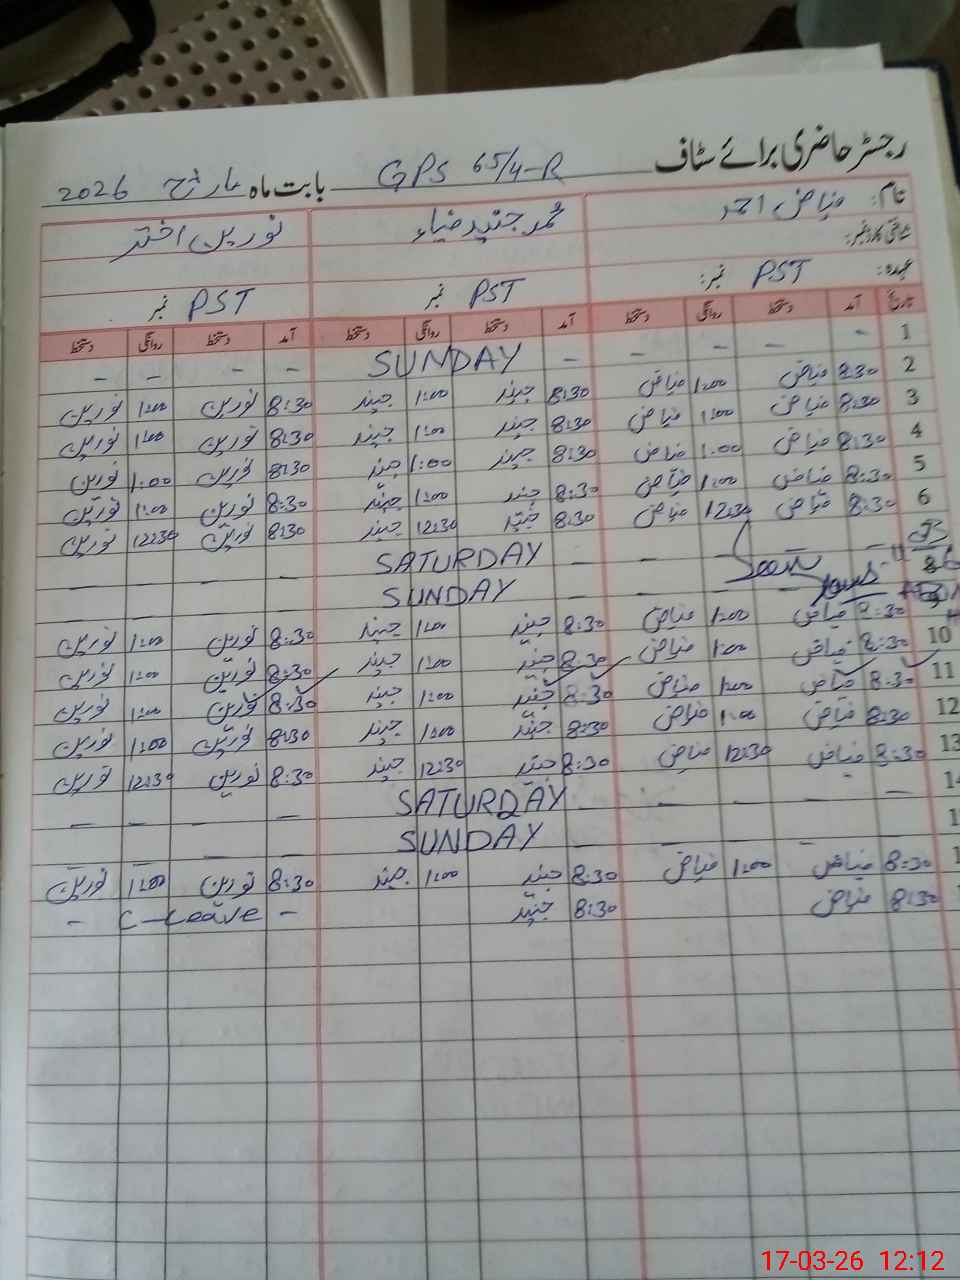 رجسٹر حاضری برائے سٹاف
GPS 65/4-R بابت ماہ مارچ 2026
نام: فیاض احمد محمد جنید ضیاء نورین اختر
شناختی کارڈ نمبر:
عہدہ: PST نمبر: PST نمبر PST نمبر
تاریخ آمد دستخط روانگی دستخط آمد دستخط روانگی دستخط آمد دستخط روانگی دستخط
1 – – – – – SUNDAY – – – –
2 8:30 فیاض 1:00 فیاض 8:30 جنید 1:00 جنید 8:30 نورین 1:00 نورین
3 8:30 فیاض 1:00 فیاض 8:30 جنید 1:00 جنید 8:30 نورین 1:00 نورین
4 8:30 فیاض 1:00 فیاض 8:30 جنید 1:00 جنید 8:30 نورین 1:00 نورین
5 8:30 فیاض 1:00 فیاض 8:30 جنید 1:00 جنید 8:30 نورین 1:00 نورین
6 8:30 فیاض 12:30 فیاض 8:30 جنید 12:30 جنید 8:30 نورین 12:30 نورین
– – – SATURDAY – – – –
8 – – – SUNDAY – – – –
9 8:30 فیاض 1:00 فیاض 8:30 جنید 1:00 جنید 8:30 نورین 1:00 نورین
10 8:30 فیاض 1:00 فیاض 8:30 جنید 1:00 جنید 8:30 نورین 1:00 نورین
11 8:30 فیاض 1:00 فیاض 8:30 جنید 1:00 جنید 8:30 نورین 1:00 نورین
12 8:30 فیاض 1:00 فیاض 8:30 جنید 1:00 جنید 8:30 نورین 1:00 نورین
13 8:30 فیاض 12:30 فیاض 8:30 جنید 12:30 جنید 8:30 نورین 12:30 نورین
– – – – – SATURDAY – – – –
– – – – – SUNDAY – – – –
8:30 فیاض 1:00 فیاض 8:30 جنید 1:00 جنید 8:30 نورین 1:00 نورین
8:30 فیاض 8:30 جنید – C-Leave –
17-03-26 12:12